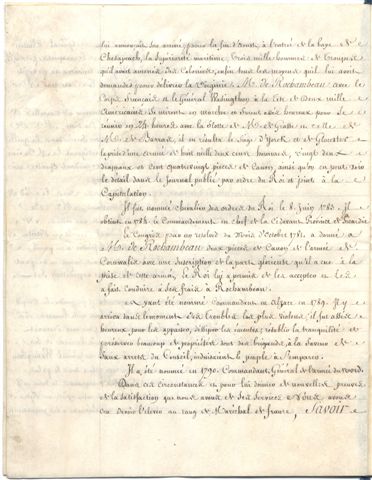 lui annonçait son arrivée pour la fin d'Aoust, à l'entrée de la baye de
Chésapeack, la Supériorité maritime, trois mille hommes de troupes
qu'il avait amenés des Colonies, enfin tous les moyens qu'il lui avait
demandés pour délivrer la Virginie. M. de Rochambeau avec le
Corps français et le Général Washington à la tête de deux mille
Américains, se mirent en marche et furent assés heureux pour se
réunir en 24 heures avec la flotte de M. de Grasse et celle de
M. de Barras, il en résulta le Siège d'York et de Glocester
la prise d'une armée de huit mille deux cens hommes, vingt deux
drapeaux et cent quatre vingt pièces de Canon, ainsi qu'on en peut voir
le détail dans le journal publié par ordre du Roi et joint à la
Capitulation.
Il fut nommé Chevalier des ordres du Roi le 8. juin 1783. il
obtint en 1784. le Commandement en chef de la ci devant Province de Picardie
Le Congrès par un résolvé du Mois d'Octobre 1781. a donné à
M. de Rochambeau deux pièces de Canon de l'armée de
Cornwalis avec une inscription de la part glorieuse qu'il a eue à la
prise de cette armée, le Roi lui a permis de les accepter et les
a fait conduire à ses frais à Rochambeau.
Ayant été nommé Commandant en Alsace en 1789. Il y
arriva dans le moment des troubles les plus violens, il fut assés
heureux pour les appaiser, dissiper les émeutes, rétablir la tranquilité et
préserver beaucoup de propriétés dont des brigands à la faveur de
faux arrets du Conseil, induisaient le peuple à s'emparer.
Il a été nommé en 1790. Commandant Général de l'armée du nord.
Dans ces circonstances et pour lui donner de nouvelles preuves
de la satisfaction que nous avons de ses Services Nous avons
cru devoir l'élever au rang de Maréchal de france, Savoir